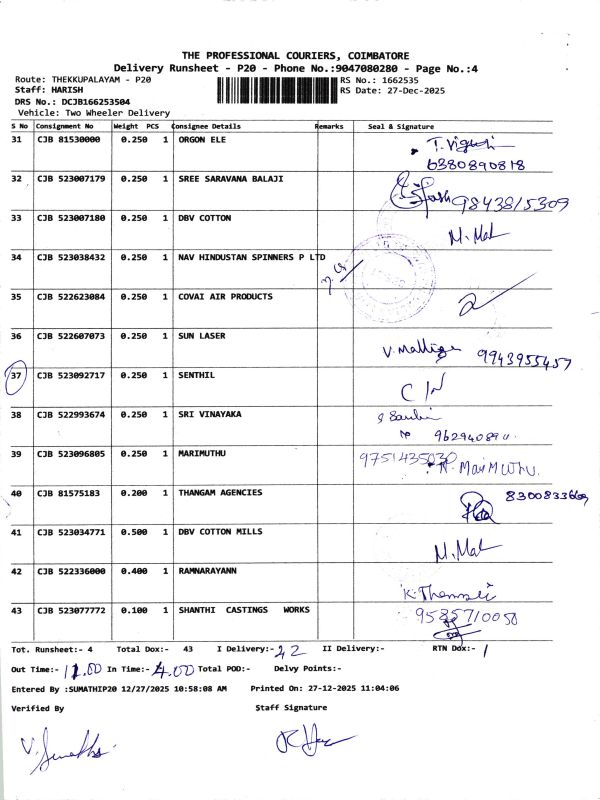 THE PROFESSIONAL COURIERS, COIMBATORE
Delivery Runsheet - P20 - Phone No.:9047080280 - Page No.:4
Route: THEKKUPALAYAM - P20
Staff: HARISH
DRS No.: DCJB166253504
Vehicle: Two Wheeler Delivery
RS No.: 1662535
RS Date: 27-Dec-2025
S No Consignment No Weight PCS Consignee Details Remarks Seal & Signature
31 CJB 81530000 0.250 1 ORGON ELE
6380890818
32 CJB 523007179 0.250 1 SREE SARAVANA BALAJI
9843815309
33 CJB 523007180 0.250 1 DBV COTTON M. Mal
34 CJB 523038432 0.250 1 NAV HINDUSTAN SPINNERS P LTD
35 CJB 522623084 0.250 1 COVAI AIR PRODUCTS
36 CJB 522607073 0.250 1 SUN LASER V. Malliga 9943955457
37 CJB 523092717 0.250 1 SENTHIL
38 CJB 522993674 0.250 1 SRI VINAYAKA
39 CJB 523096805 0.250 1 MARIMUTHU 9751435030
40 CJB 81575183 0.200 1 THANGAM AGENCIES 8300833669
41 CJB 523034771 0.500 1 DBV COTTON MILLS M. Mal
42 CJB 522336000 0.400 1 RAMNARAYANN
43 CJB 523077772 0.100 1 SHANTHI CASTINGS WORKS 9585710050
Tot. Runsheet:- 4 Total Dox:- 43 I Delivery:- 42 II Delivery:- RTN Dox:- 1
Out Time:- 11.00 In Time:- 4.00 Total POD:- Delvy Points:-
Entered By :SUMATHIP20 12/27/2025 10:58:08 AM Printed On: 27-12-2025 11:04:06
Verified By Staff Signature